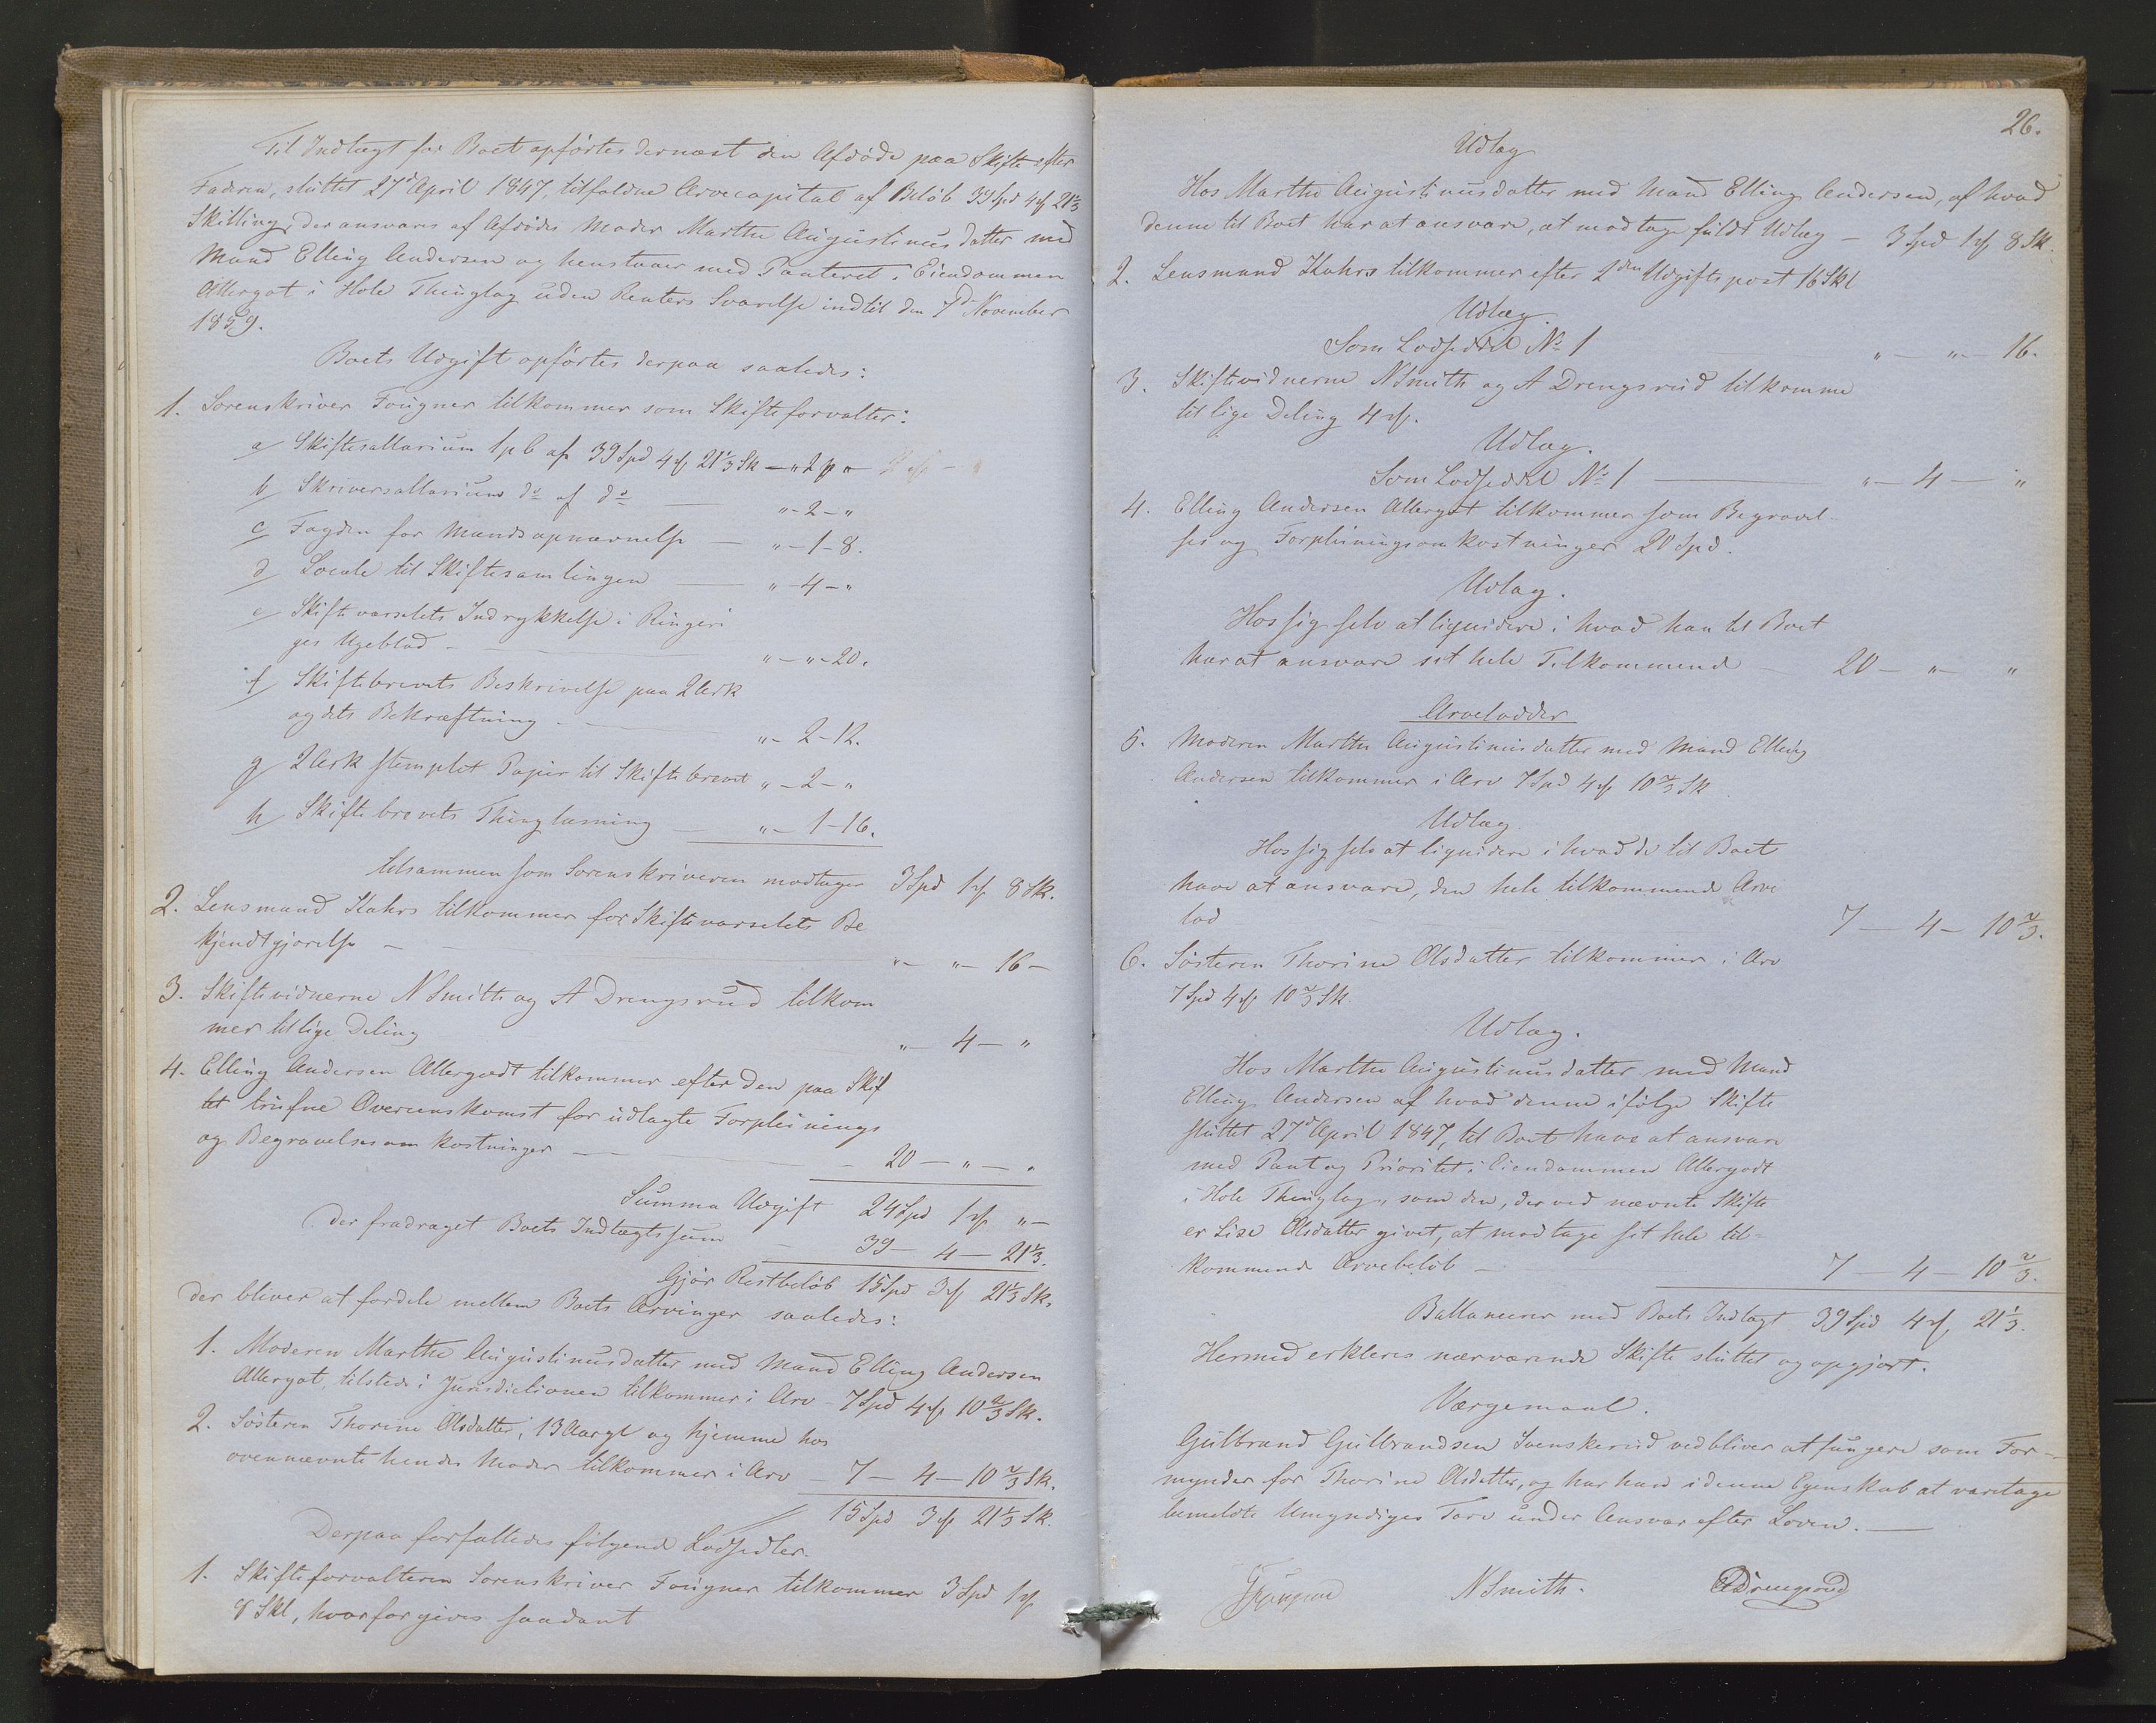 Til Indtægt for Boet opførtes dernæst den Afdøde paa Skifte efter
Faderen, sluttet 27d April 1847, tilfaldne Arvecapital af Beløb 39 Spd 4 ₰ 21 1/3
Skilling, der ansvares af Afdødes Moder Marthe Augustinusdatter med
Mand Elling Andersen og henstaaer med Panteret i Eiendommen
Allergot i Hole Thinglag uden Renters Svarelse indtil den 7d November
1859.
Boets Udgift opførtes derpaa saaledes:
1. Sorenskriver Fougner tilkommer som Skifteforvalter:
a/ Skiftesallarium 1 pC af 39 Spd 4 ₰ 21 1/3 Sk — " 2 ₰ "
b/ Skriversallarium do af do — " - 2 - "
c/ Fogden for Mandsopnævnelse — " - 1 - 8.
d/ Locale til Skiftesamlingen — " - 4 - "
e/ Skiftevarselets Indrykkelse i Ringeri
ges Ugeblad — " - " - 20.
f/ Skiftebrevets Beskrivelse paa 2 Ark
og dets Bekræftning — " - 2 - 12.
g/ 2 Ark stemplet Papir til Skiftebrevet " - 2 - "
h/ Skiftebrevets Thinglæsning — " - 1 - 16.
tilsammen som Sorenskriveren modtager 3 Spd 1 ₰ 8 Sk.
2. Lensmand Kahrs tilkommer for Skiftevarselets Be
kjendtgjørelse — " - " - 16 -
3. Skiftevidnerne N Smith og A Drengsrud tilkom
mer til lige Deling " - 4 - "
4. Elling Andersen Allergodt tilkommer efter den paa Skif
tet trufne Overenskomst for udlagte Forpleinings
og Begravelsesomkostninger — 20 - " - "
Summa Udgift 24 Spd 1 ₰ " -
der fradraget Boets Indtægtssum — 39 - 4 - 21 1/3.
Gjør Restbeløb 15 Spd 3 ₰ 21 1/3 Sk,
der bliver at fordele mellem Boets Arvinger saaledes:
1. Moderen Marthe Augustinusdatter med Mand Elling Andersen
Allergot, tilstede i Jurisdictionen tilkommer i Arv - 7 Spd 4 ₰ 10 2/3 Sk.
2. Søsteren Thorine Olsdatter, 13 Aargl og hjemme hos
ovennævnte hendes Moder tilkommer i Arv - 7 - 4 - 10 2/3 Sk.
15 Spd 3 ₰ 21 1/3 Sk.
Derpaa forfattedes følgende Lodsedler.
1. Skifteforvalteren Sorenskriver Fougner tilkommer 3 Spd 1 ₰
8 Skl, hvorfor gives saadant
26.
Udlæg
Hos Marthe Augustinusdatter med Mand Elling Andersen, af hvad
denne til Boet har at ansvare, at modtage fuldt Udlæg - 3 Spd 1 ₰ 8 Sk.
2. Lensmand Kahrs tilkommer efter 2den Udgiftspost 16 Skl
Udlæg
Som Lodseddel No 1 — " - " - 16.
3. Skiftevidnerne N Smith og A Drengsrud tilkomme
til lige Deling 4 ₰.
Udlæg.
Som Lodseddel No 1 — " - 4 - "
4. Elling Andersen Allergot tilkommer som Begravel-
ses og Forpleiningsomkostninger 20 Spd.
Udlæg.
Hos sig selv at liqvidere i hvad han til Boet
har at ansvare sit hele Tilkommende — 20 - " - "
Arvelodder
5. Moderen Marthe Augustinusdatter med Mand Elling
Andersen tilkommer i Arv 7 Spd 4 ₰ 10 2/3 Sk
Udlæg
Hos sig selv at liqvidere i hvad de til Boet
have at ansvare, den hele tilkommende Arve
lod 7 - 4 - 10 2/3.
6. Søsteren Thorine Olsdatter tilkommer i Arv
7 Spd 4 ₰ 10 2/3 Sk.
Udlæg.
Hos Marthe Augustinusdatter med Mand
Elling Andersen af hvad denne ifølge Skifte
sluttet 27d April 1847, til Boet have at ansvare
med Pant og Prioritet i Eiendommen Allergodt
i Hole Thinglag, som den, der ved nævnte Skifte
er Lise Olsdatter givet, at modtage sit hele til-
kommende Arvebeløb — 7 - 4 - 10 2/3.
Ballancerer med Boets Indtægt 39 Spd 4 ₰ 21 1/3.
Hermed erkleres nærværende Skifte sluttet og opgjort.
Værgemaal.
Gulbrand Gulbrandsen Svenskerud vedbliver at fungere som For-
mynder for Thorine Olsdatter, og har han i denne Egenskab at varetage
bemeldte Umyndiges Tarv under Ansvar efter Loven. —
Fougner N Smith. A Drengsrud